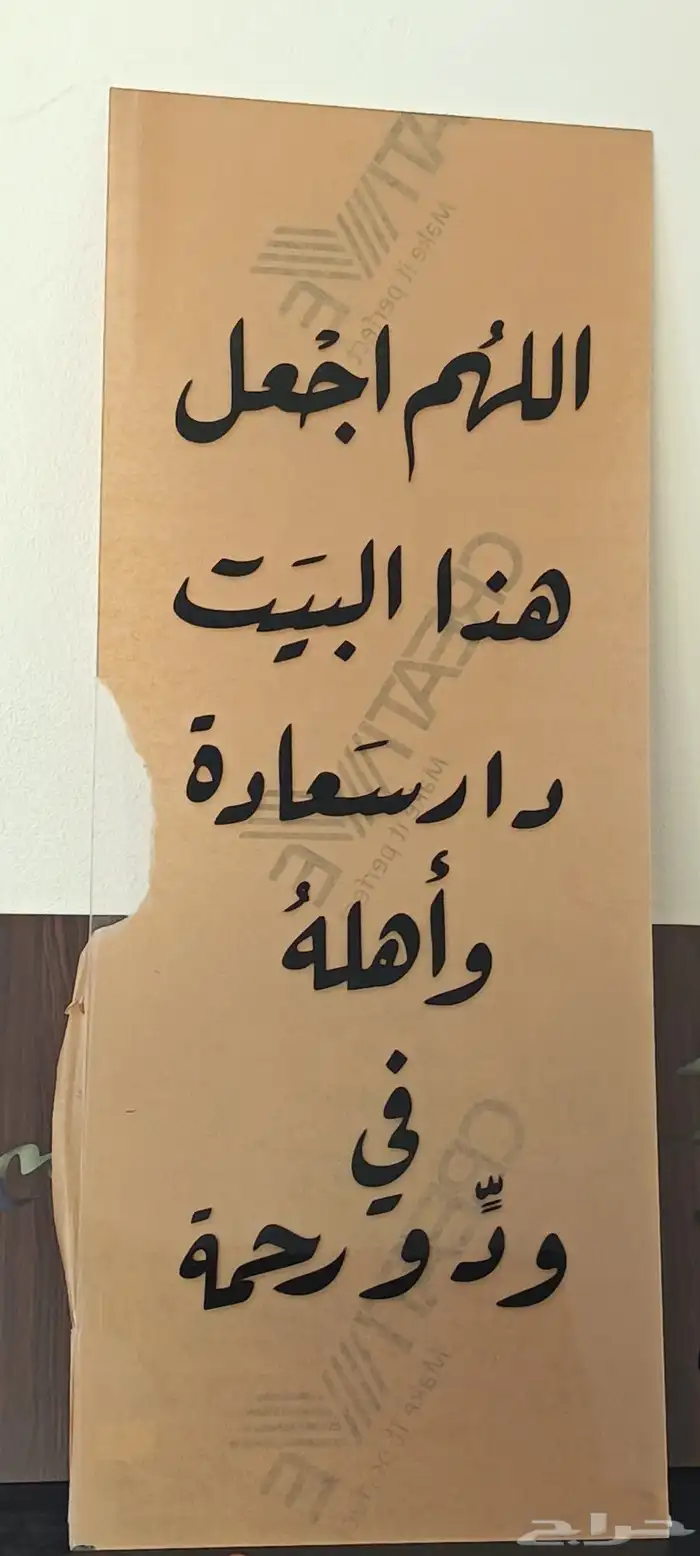 اللهُم اجْعل
هذا البيَت
دار سَعادة
وأهلهُ
في
ودٍّ ورحمة
CREATIVE
Make it perfect
CREATIVE
Make it perfect
CREATIVE
Make it perfect
حراج